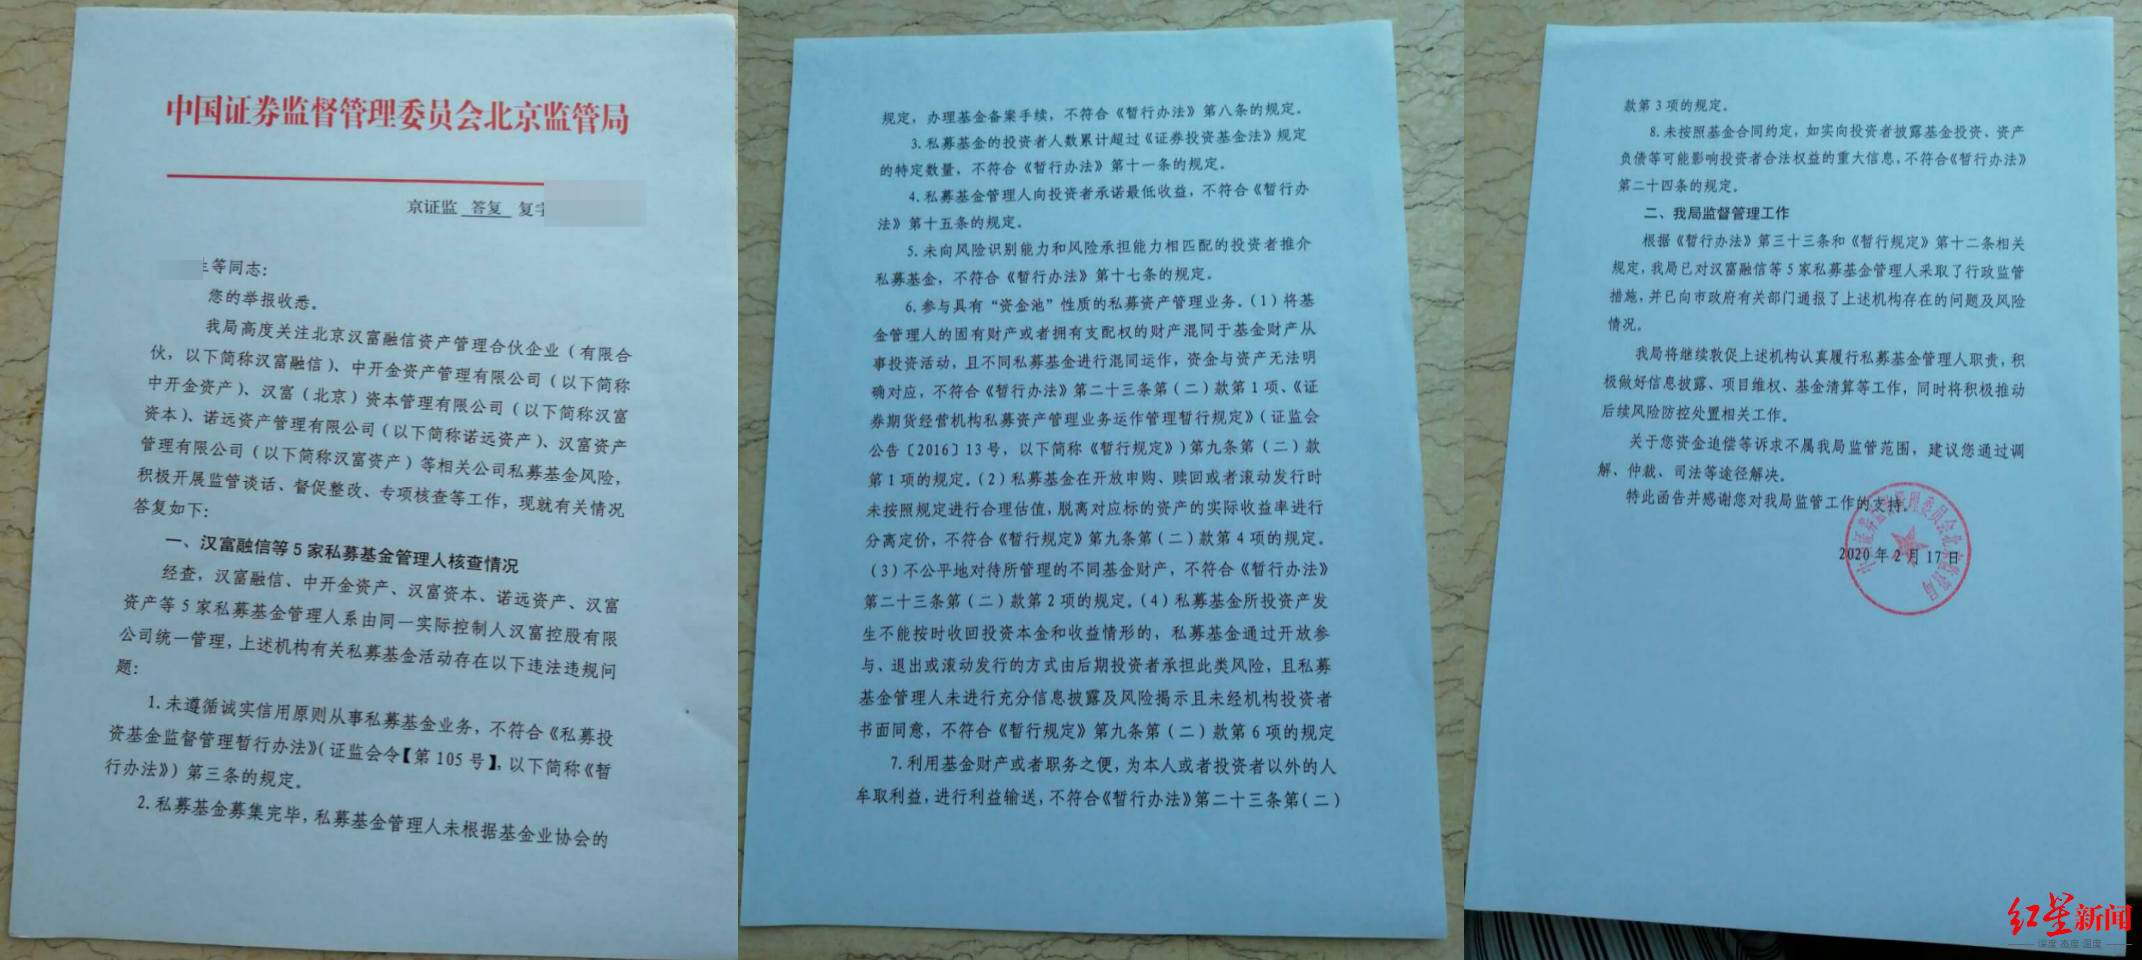 中国证券监督管理委员会北京监管局
京证监 答复 复字
等同志：
您的举报收悉。
我局高度关注北京汉富融信资产管理合伙企业（有限合
伙，以下简称汉富融信）、中开金资产管理有限公司（以下简称
中开金资产）、汉富（北京）资本管理有限公司（以下简称汉富
资本）、诺远资产管理有限公司（以下简称诺远资产）、汉富资产
管理有限公司（以下简称汉富资产）等相关公司私募基金风险，
积极开展监管谈话、督促整改、专项核查等工作，现就有关情况
答复如下：
一、汉富融信等5家私募基金管理人核查情况
经查，汉富融信、中开金资产、汉富资本、诺远资产、汉富
资产等5家私募基金管理人系由同一实际控制人汉富控股有限
公司统一管理，上述机构有关私募基金活动存在以下违法违规问
题：
1.未遵循诚实信用原则从事私募基金业务，不符合《私募投
资基金监督管理暂行办法》（证监会令【第105号】，以下简称《暂
行办法》）第三条的规定。
2.私募基金募集完毕，私募基金管理人未根据基金业协会的
规定，办理基金备案手续，不符合《暂行办法》第八条的规定。
3.私募基金的投资者人数累计超过《证券投资基金法》规定
的特定数量，不符合《暂行办法》第十一条的规定。
4.私募基金管理人向投资者承诺最低收益，不符合《暂行办
法》第十五条的规定。
5.未向风险识别能力和风险承担能力相匹配的投资者推介
私募基金，不符合《暂行办法》第十七条的规定。
6.参与具有“资金池”性质的私募资产管理业务。（1）将基
金管理人的固有财产或者拥有支配权的财产混同于基金财产从
事投资活动，且不同私募基金进行混同运作，资金与资产无法明
确对应，不符合《暂行办法》第二十三条第（二）款第1项、《证
券期货经营机构私募资产管理业务运作管理暂行规定》（证监会
公告〔2016〕13号，以下简称《暂行规定》）第九条第（二）款
第1项的规定。（2）私募基金在开放申购、赎回或者滚动发行时
未按照规定进行合理估值，脱离对应标的资产的实际收益率进行
分离定价，不符合《暂行规定》第九条第（二）款第4项的规定。
（3）不公平地对待所管理的不同基金财产，不符合《暂行办法》
第二十三条第（二）款第2项的规定。（4）私募基金所投资产发
生不能按时收回投资本金和收益情形的，私募基金通过开放参
与、退出或滚动发行的方式由后期投资者承担此类风险，且私募
基金管理人未进行充分信息披露及风险揭示且未经机构投资者
书面同意，不符合《暂行规定》第九条第（二）款第6项的规定
7.利用基金财产或者职务之便，为本人或者投资者以外的人
牟取利益，进行利益输送，不符合《暂行办法》第二十三条第（二）
款第3项的规定。
8.未按照基金合同约定，如实向投资者披露基金投资、资产
负债等可能影响投资者合法权益的重大信息，不符合《暂行办法》
第二十四条的规定。
二、我局监督管理工作
根据《暂行办法》第三十三条和《暂行规定》第十二条相关
规定，我局已对汉富融信等5家私募基金管理人采取了行政监管
措施，并已向市政府有关部门通报了上述机构存在的问题及风险
情况。
我局将继续敦促上述机构认真履行私募基金管理人职责，积
极做好信息披露、项目维权、基金清算等工作，同时将积极推动
后续风险防控处置相关工作。
关于您资金追偿等诉求不属我局监管范围，建议您通过调
解、仲裁、司法等途径解决。
特此函告并感谢您对我局监管工作的支持。
2020年2月17日
中国证券监督管理委员会北京监管局
红星新闻
深度 态度 温度